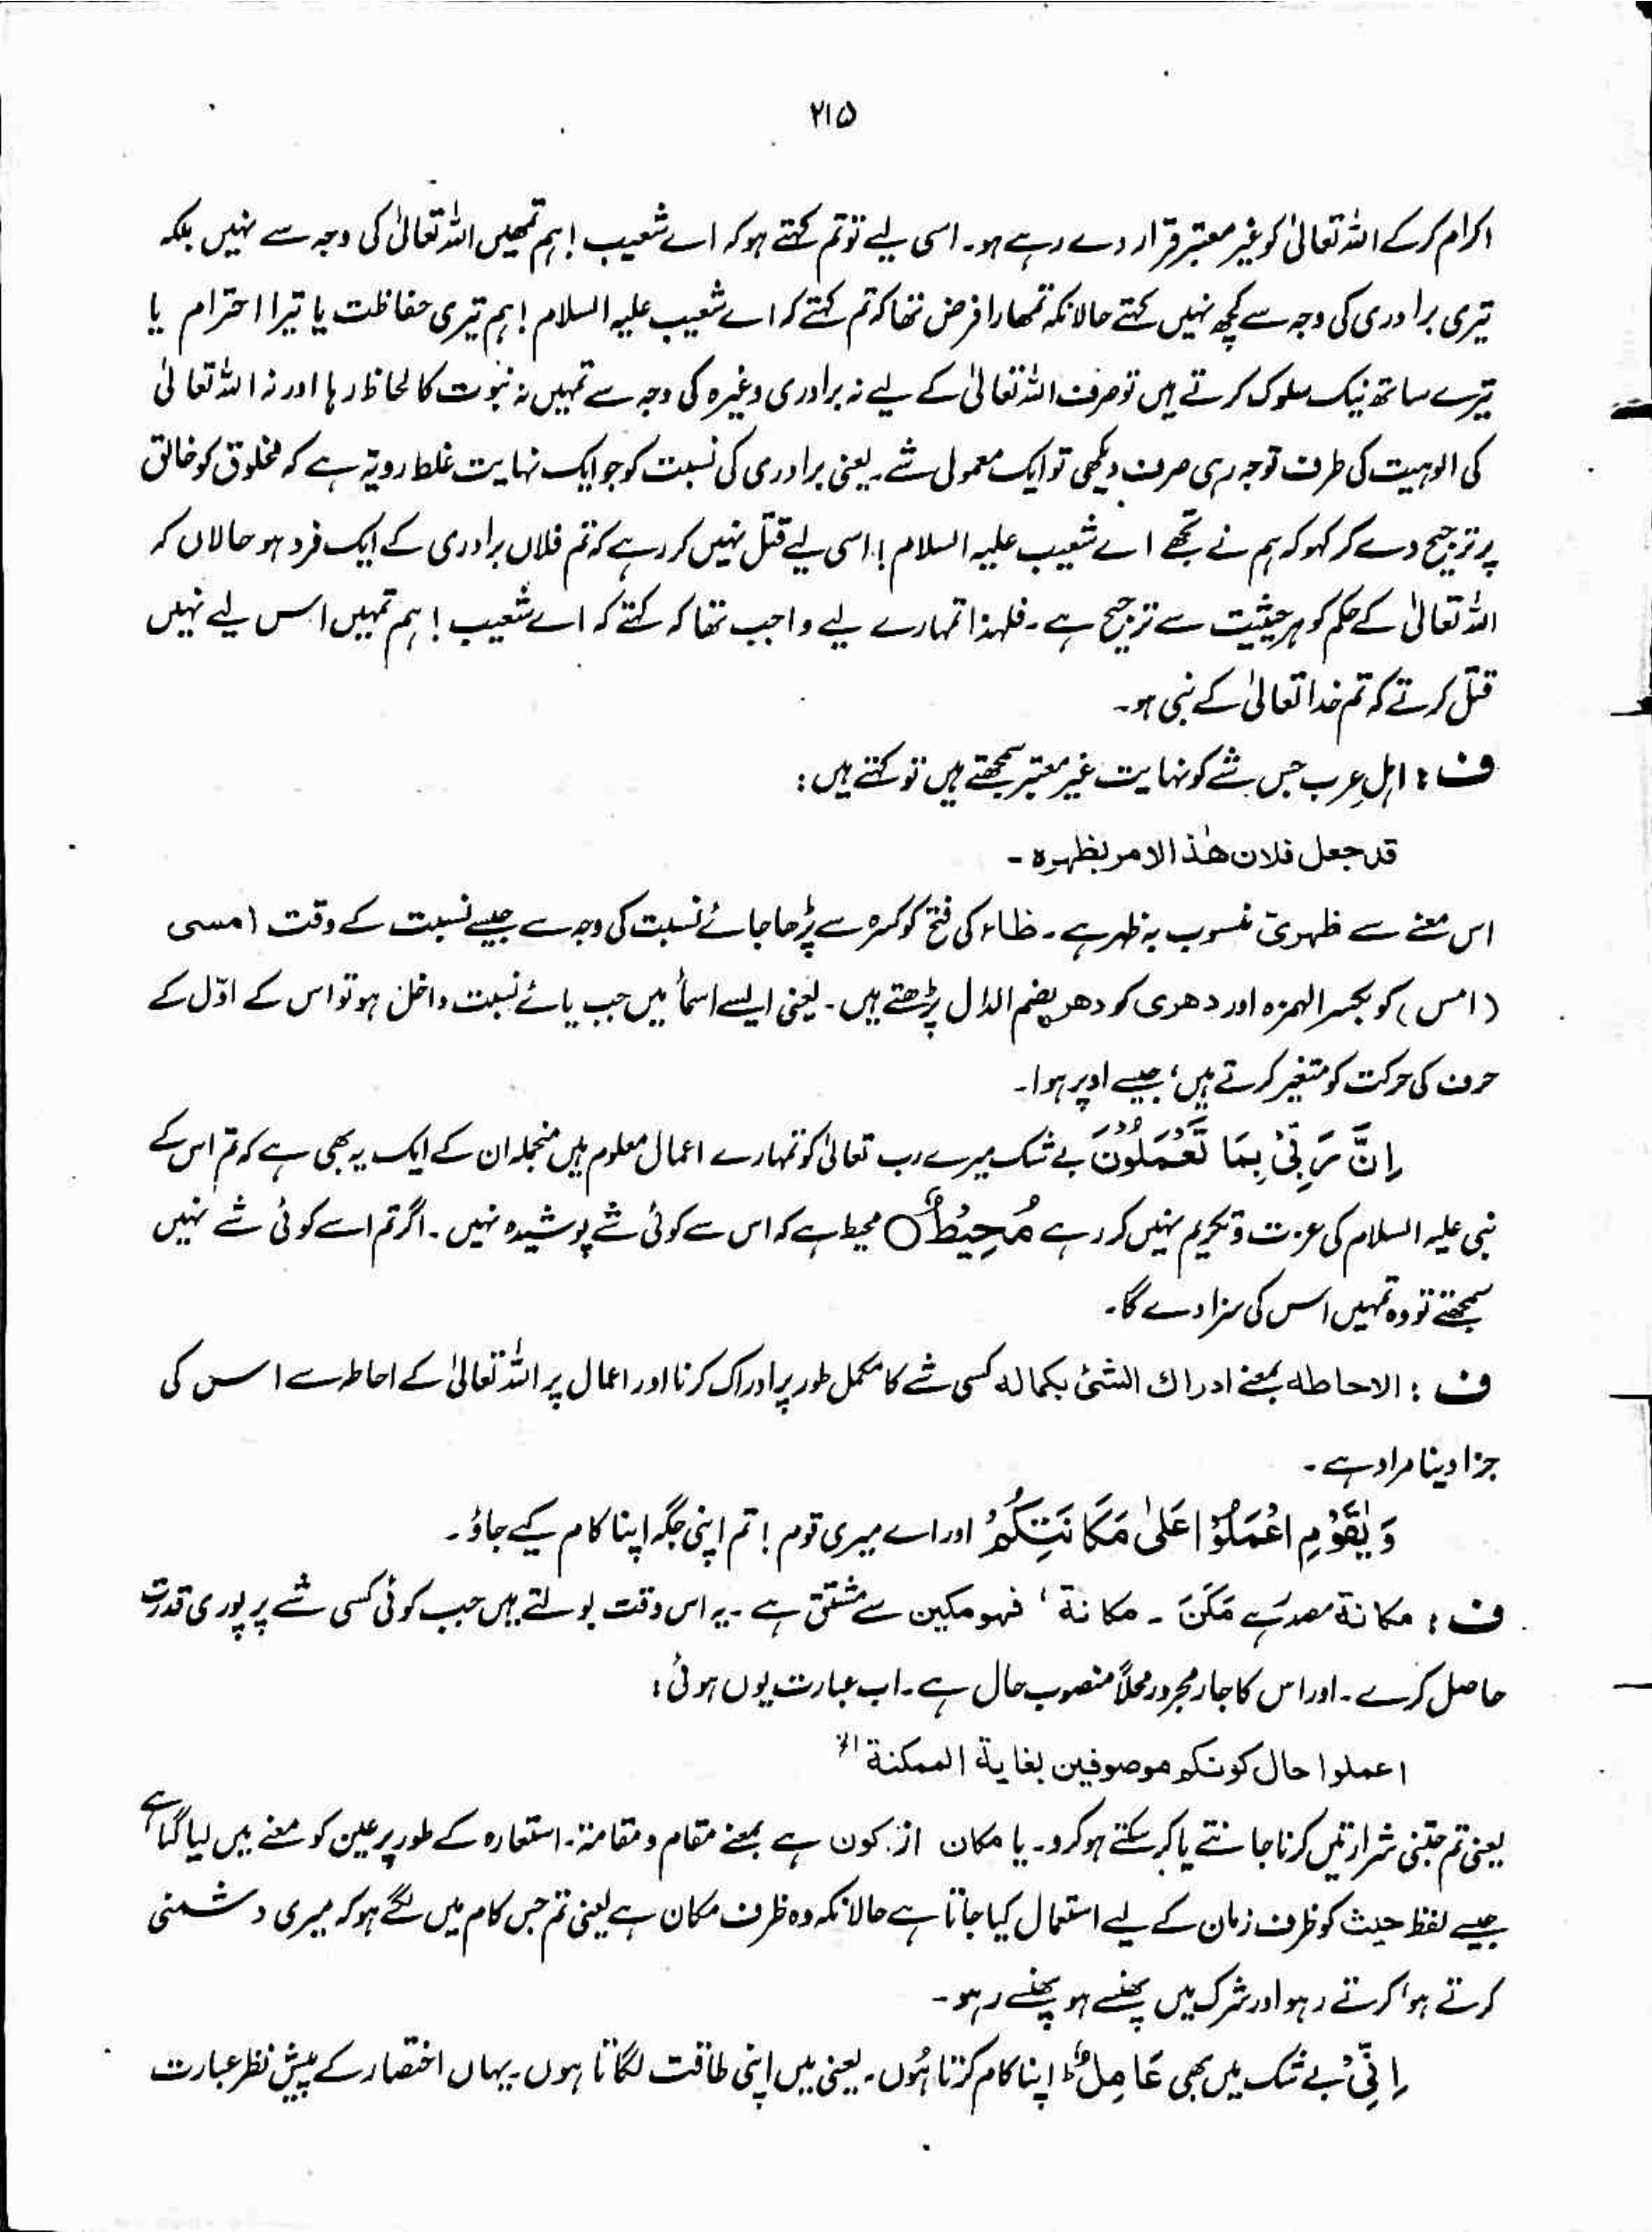 ۲۱۵
اکرام کرکے اللہ تعالیٰ کو غیر معتبر قرار دے رہے ہو۔ اسی لیے تو تم کہتے ہو کہ اے شعیب! ہم تمھیں اللہ تعالیٰ کی وجہ سے نہیں بلکہ
تیری برادری کی وجہ سے کچھ نہیں کہتے حالانکہ تمھارا فرض تھا کہ تم کہتے کہ اے شعیب علیہ السلام! ہم تیری حفاظت یا تیرا احترام یا
تیرے ساتھ نیک سلوک کرتے ہیں تو صرف اللہ تعالیٰ کے لیے نہ برادری وغیرہ کی وجہ سے تمہیں نہ نبوت کا لحاظ رہا اور نہ اللہ تعالیٰ
کی الوہیت کی طرف توجہ رہی صرف دیکھی تو ایک معمولی شے۔ یعنی برادری کی نسبت کو جو ایک نہایت غلط رویہ ہے کہ مخلوق کو خالق
پر ترجیح دے کر کہو کہ ہم نے تجھے اے شعیب علیہ السلام! اسی لیے قتل نہیں کر رہے کہ تم فلاں برادری کے ایک فرد ہو حالاں کہ
اللہ تعالیٰ کے حکم کو ہر حیثیت سے ترجیح ہے۔ فلہذا تمہارے لیے واجب تھا کہ کہتے کہ اے شعیب! ہم تمہیں اس لیے نہیں
قتل کرتے کہ تم خدا تعالیٰ کے نبی ہو۔
ف: اہلِ عرب جس شے کو نہایت غیر معتبر سمجھتے ہیں تو کہتے ہیں:
قد جعل فلان ھٰذا الامر بظھرہ۔
اس معنے سے ظھریّ منسوب بہ ظہر ہے۔ ظاء کی فتح کو کسرہ سے پڑھا جائے نسبت کی وجہ سے جیسے نسبت کے وقت امسی
(امس) کو بکسر الہمزہ اور دھری کو دھر بضم الدال پڑھتے ہیں۔ یعنی ایسے اسمأ میں جب یائے نسبت داخل ہو تو اس کے اوّل کے
حرف کی حرکت کو متغیر کرتے ہیں، جیسے اوپر ہوا۔
اِنَّ رَبِّیْ بِمَا تَعْمَلُوْنَ بے شک میرے رب تعالیٰ کو تمہارے اعمال معلوم ہیں منجملہ ان کے ایک یہ بھی ہے کہ تم اس کے
نبی علیہ السلام کی عزت و تکریم نہیں کر رہے مُحِیْطٌ ○ محیط ہے کہ اس سے کوئی شے پوشیدہ نہیں۔ اگر تم اسے کوئی شے نہیں
سمجھتے تو وہ تمہیں اس کی سزا دے گا۔
ف: الاحاطہ بمعنے ادراك الشئ بکمالہ کسی شے کا مکمل طور پر ادراک کرنا اور اعمال پر اللہ تعالیٰ کے احاطہ سے اس کی
جزا دینا مراد ہے۔
وَیٰقَوْمِ اعْمَلُوْا عَلٰی مَکَانَتِکُمْ اور اے میری قوم! تم اپنی جگہ اپنا کام کیے جاؤ۔
ف: مکانة مصدر ہے مَکَنَ۔ مکانة، فہو مکین سے مشتق ہے۔ یہ اس وقت بولتے ہیں جب کوئی کسی شے پر پوری قدرت
حاصل کرے۔ اور اس کا جار مجرور محلاً منصوب حال ہے۔ اب عبارت یوں ہوئی:
اعملوا حال کونکم موصوفین بغایة الممکنة الخ
یعنی تم جتنی شرارتیں کرنا جانتے یا کر سکتے ہو کرو۔ یا مکان از کون ہے بمعنے مقام و مقامة۔ استعارہ کے طور پر عین کو معنے میں لیا گیا ہے
جیسے لفظ حیث کو ظرف زمان کے لیے استعمال کیا جاتا ہے حالانکہ وہ ظرف مکان ہے یعنی تم جس کام میں لگے ہو کہ میری دشمنی
کرتے ہو، کرتے رہو اور شرک میں پھنسے ہو پھنسے رہو۔
اِنِّیْ بے شک میں بھی عَامِلٌ ط اپنا کام کرتا ہُوں۔ یعنی میں اپنی طاقت لگاتا ہوں۔ یہاں اختصار کے پیش نظر عبارت